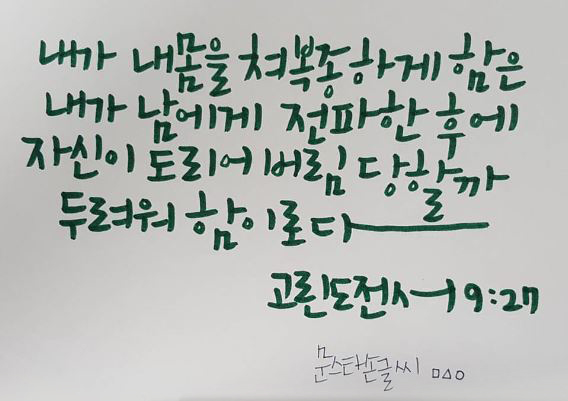 내가 내몸을 쳐복종하게 함은
내가 남에게 전파한 후에
자신이 도리어 버림 당할까
두려워 함이로다
고린도전서 9:27
문스타손글씨 ㅁㅿㅇ